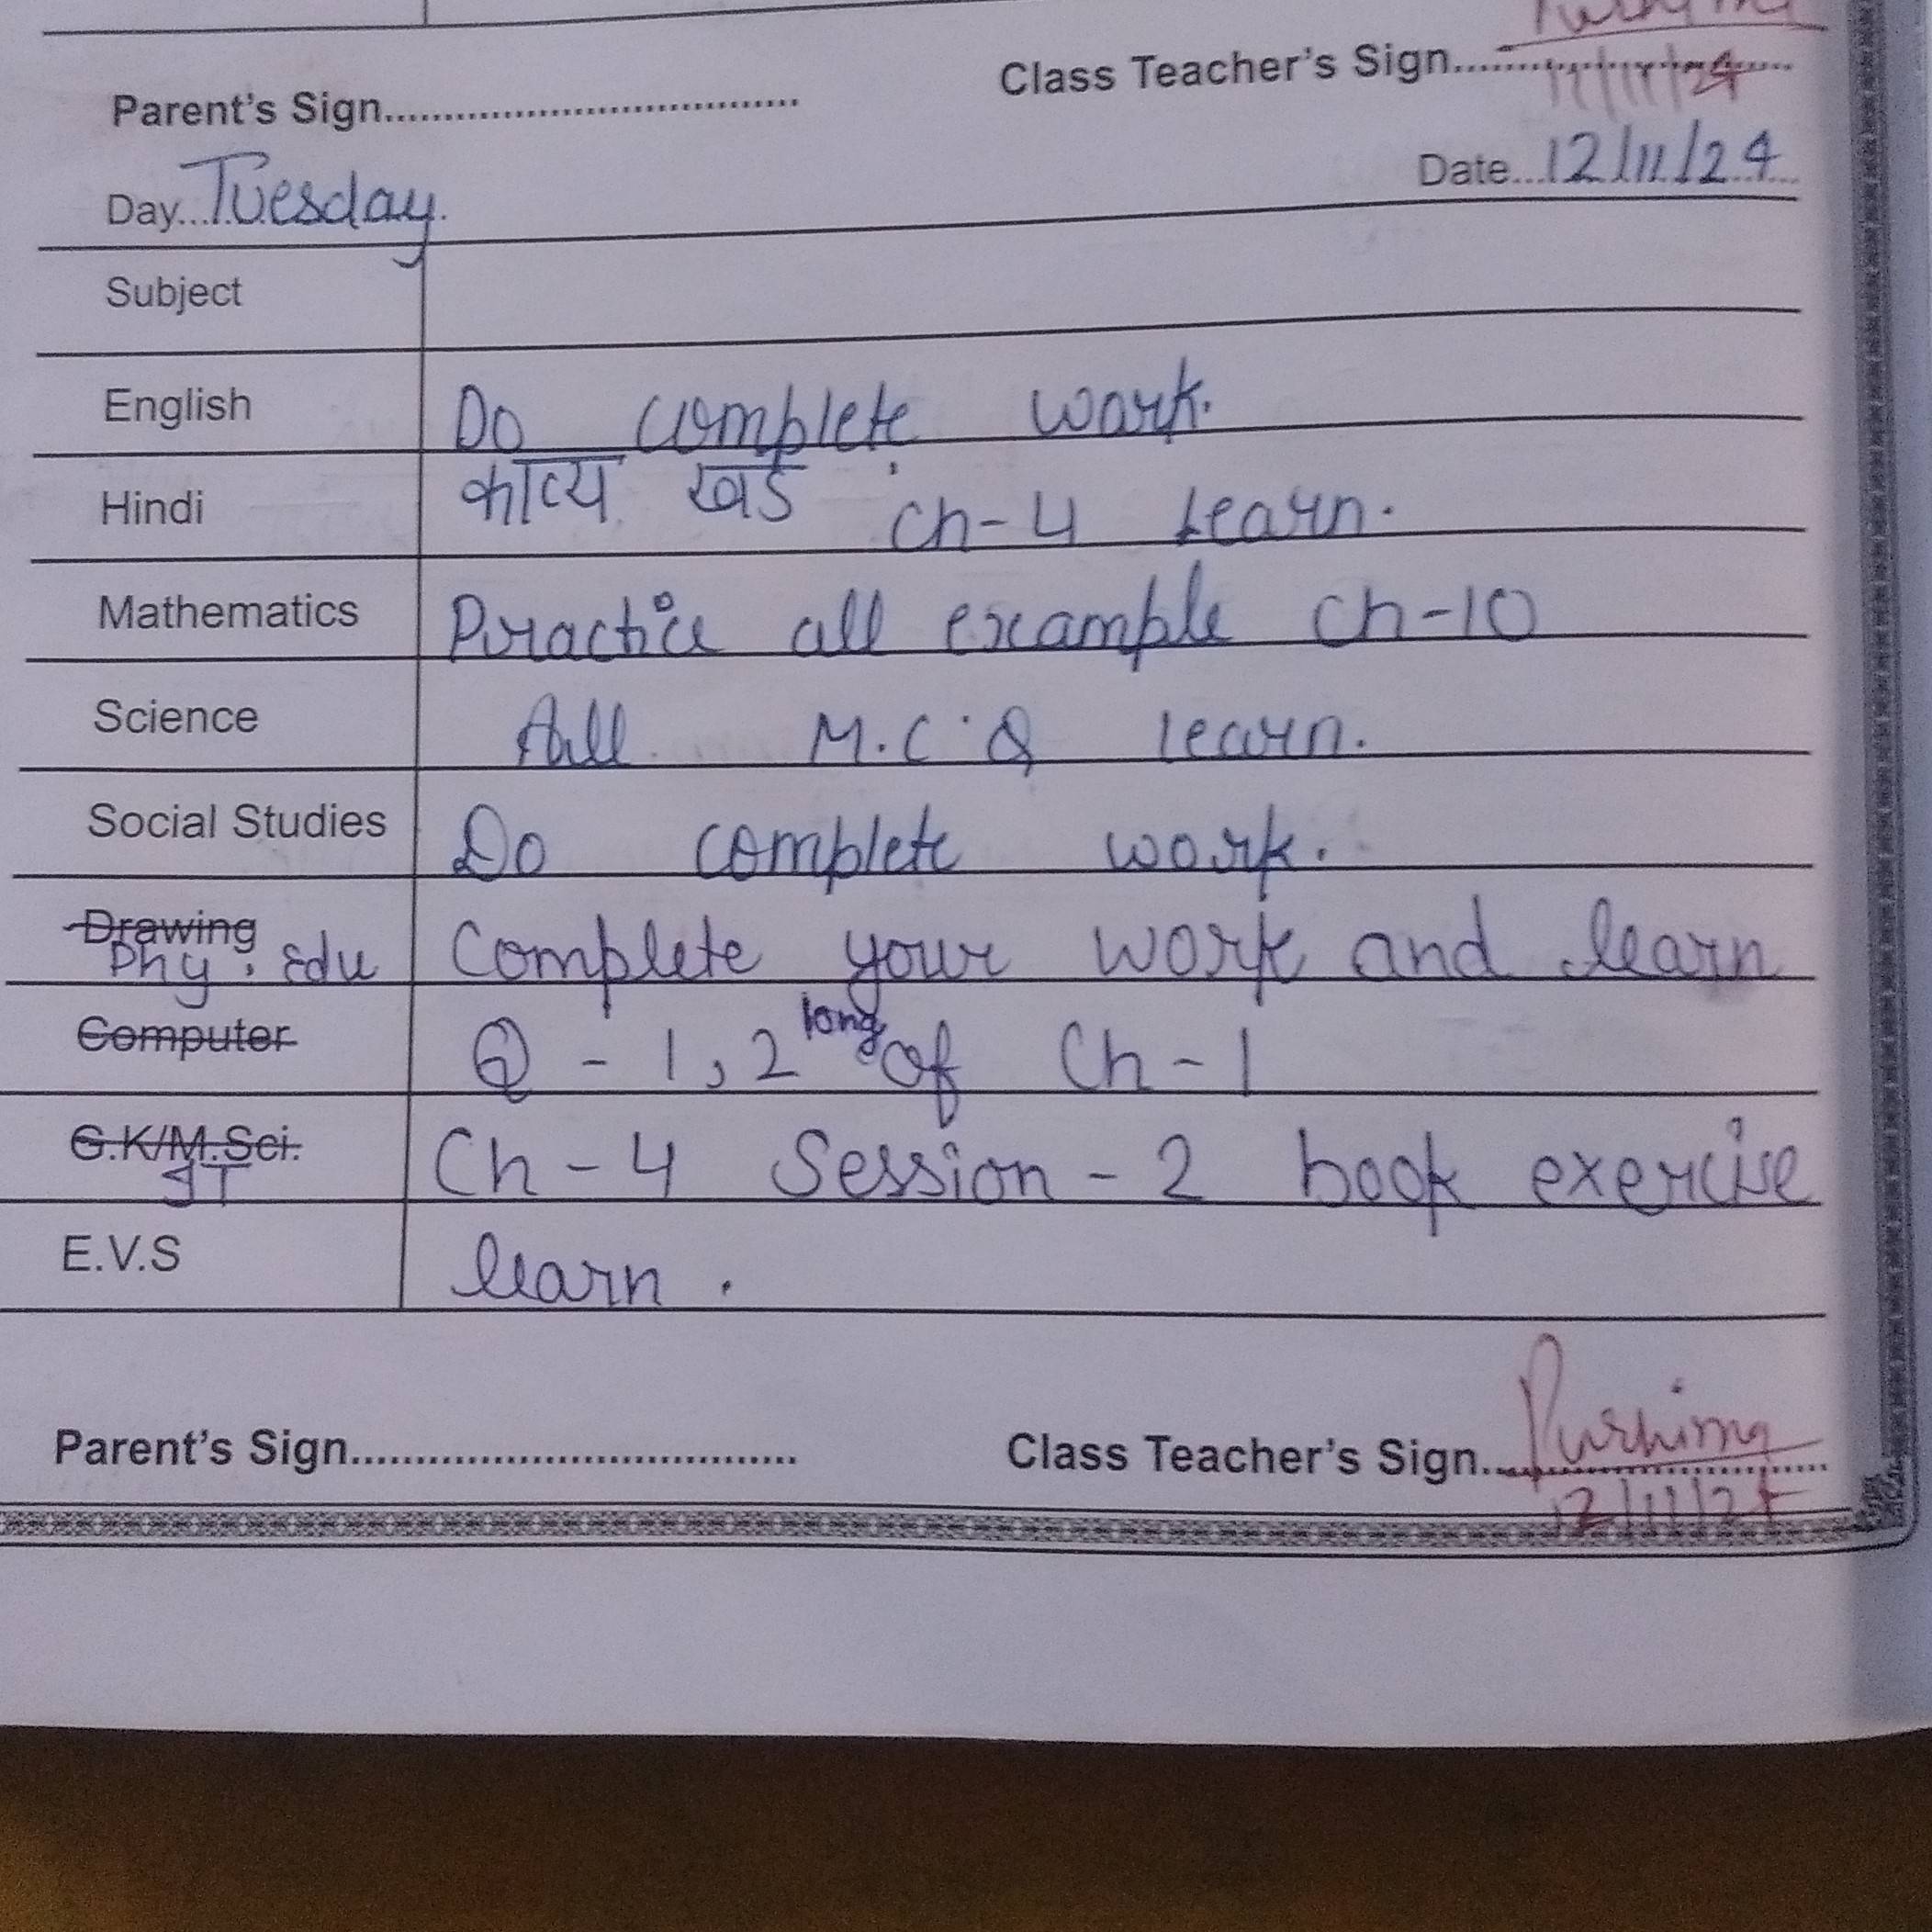 Class Teacher's Sign..........
11/11/24
Parent's Sign..........
Date...12/11/24
Day...Tuesday.
Subject
English Do complete work.
Hindi काव्य खंड ch-4 learn.
Mathematics Practice all example Ch-10
Science All M.C.Q learn.
Social Studies Do complete work.
Drawing
Phy. Edu Complete your work and learn
Computer Q-1,2 long of Ch-1
G.K/M.Sci.
IT Ch-4 Session-2 book exercise
E.V.S learn.
Parent's Sign..........
Class Teacher's Sign..........
12/11/24